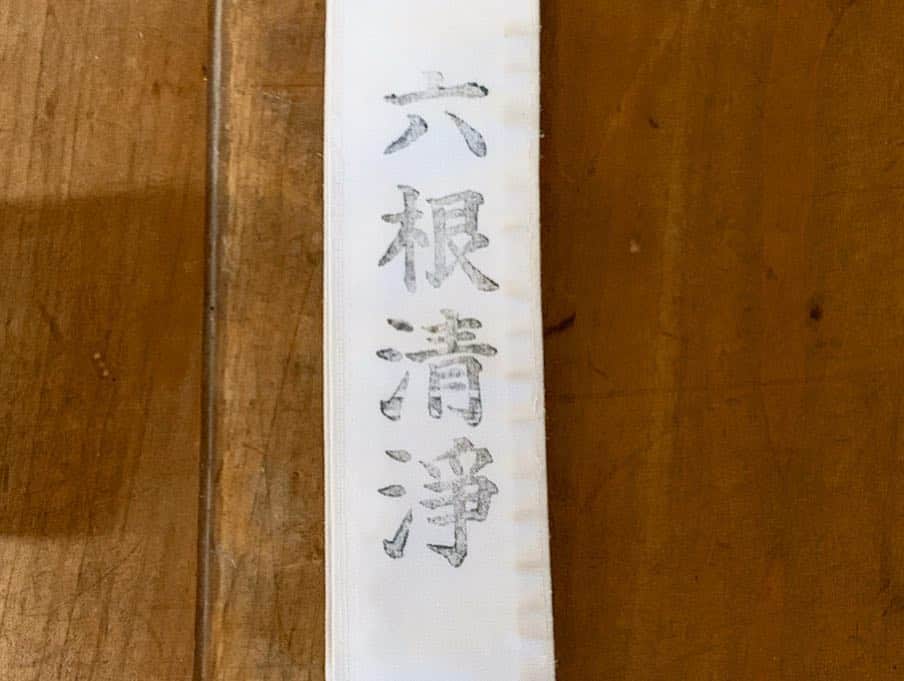 六根清淨